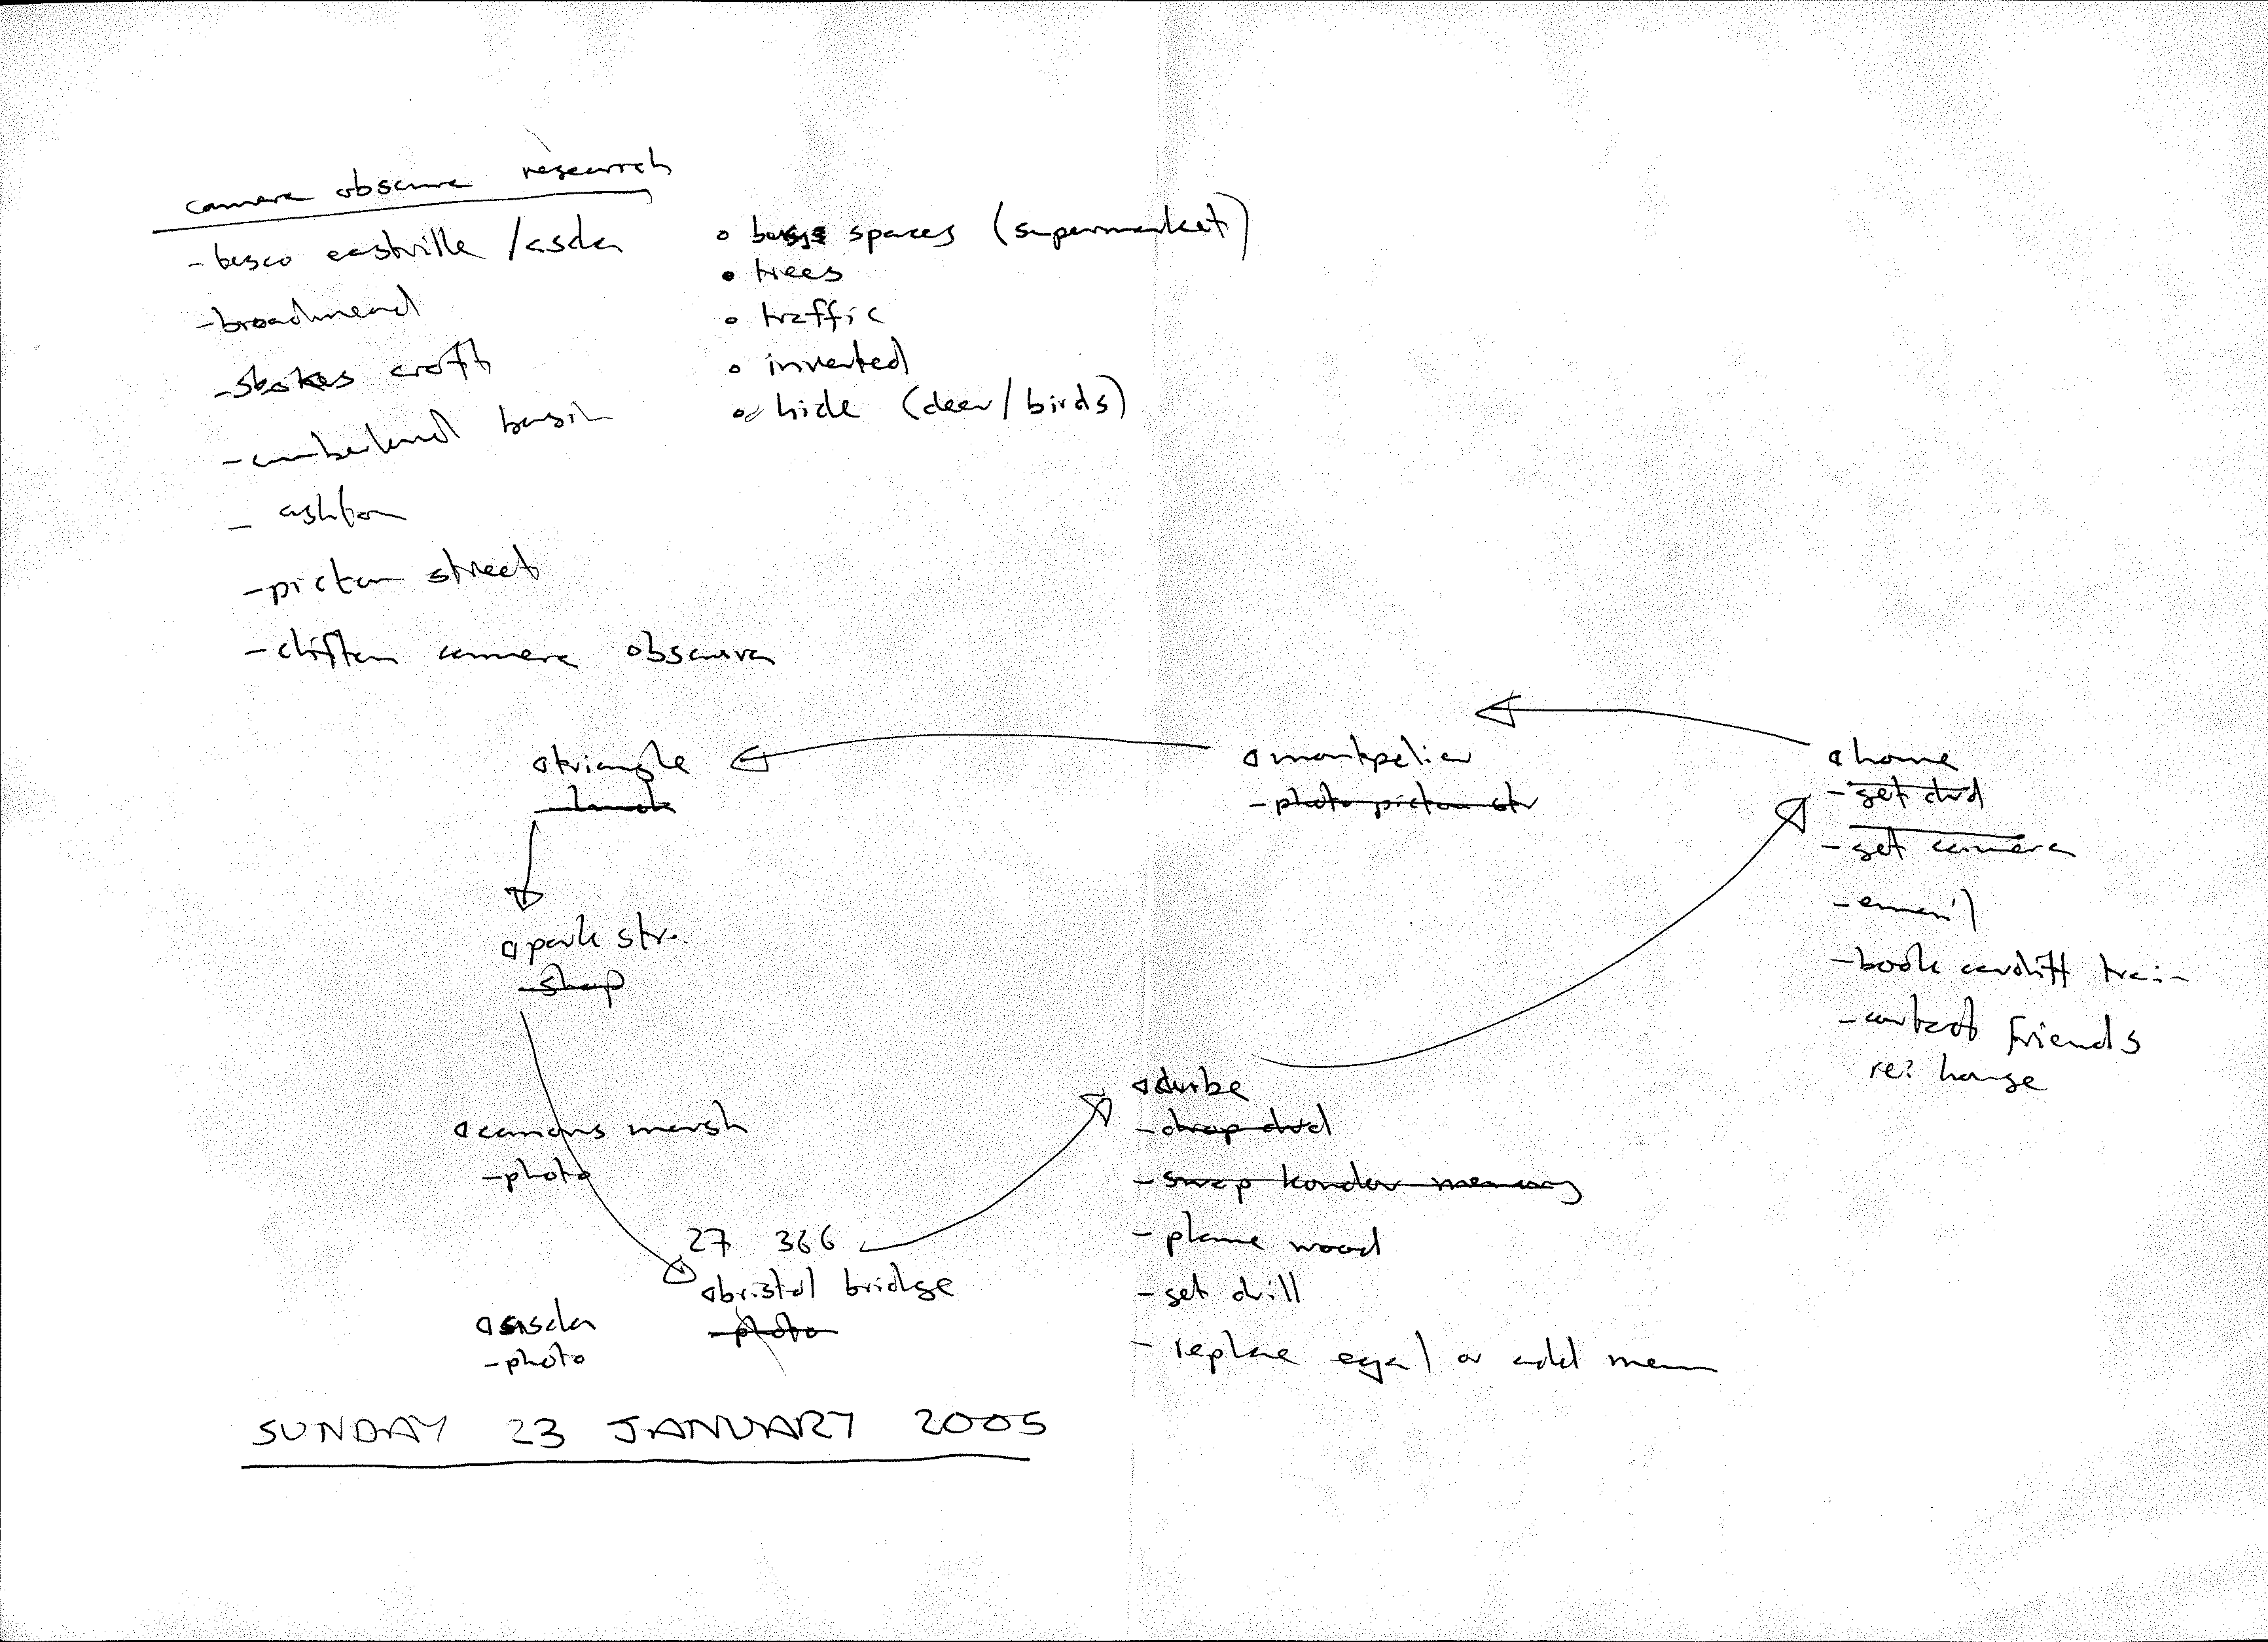 camera obscura research
- tesco eastville / asda
- broadmead
- stokes croft
- cumberland basin
- ashton
- picton street
- clifton camera obscura
busy spaces (supermarket)
trees
traffic
inverted
hide (deer/birds)
triangle
- lunch
montpelier
- photo picton str
home
- get dvd
- get camera
- email
- book cardiff train
- contact friends
re: house
park str.
- shop
canons marsh
- photo
27 366
bristol bridge
- photo
asda
- photo
cube
- drop dvd
- swap memory
- plane wood
- get drill
- replace or add mem
SUNDAY 23 JANUARY 2005